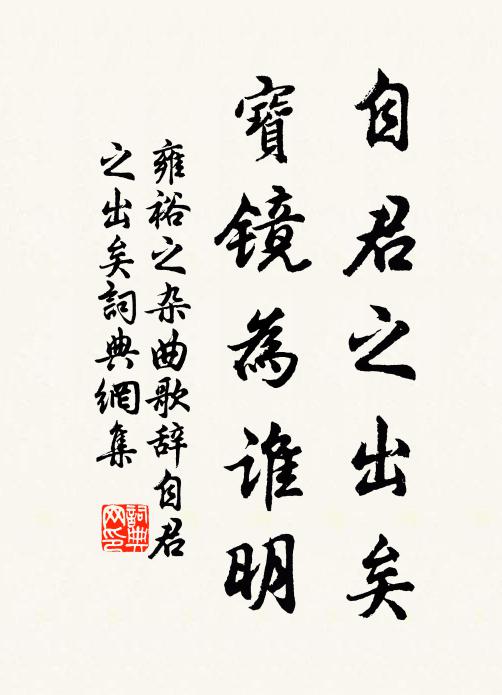 自君之出矣
寶镜為谁明
雍裕之杂曲歌辞自君
之出矣詞典網集
詞典
网印